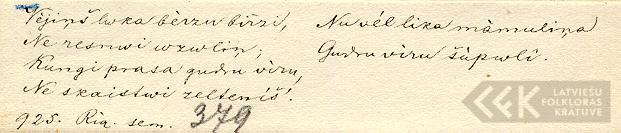 Vējiņš lwka bèrzu birzi,
Ne resnwi wzwliņ;
Kungi prasa gudru vìru,
Ne skaistwi zelteniš!
Nu vél lika màmuliņa
Gudru vìru šúpwlî.
925. Rig. sem. 379
LATVIEŠU
FOLKLORAS
KRATUVE